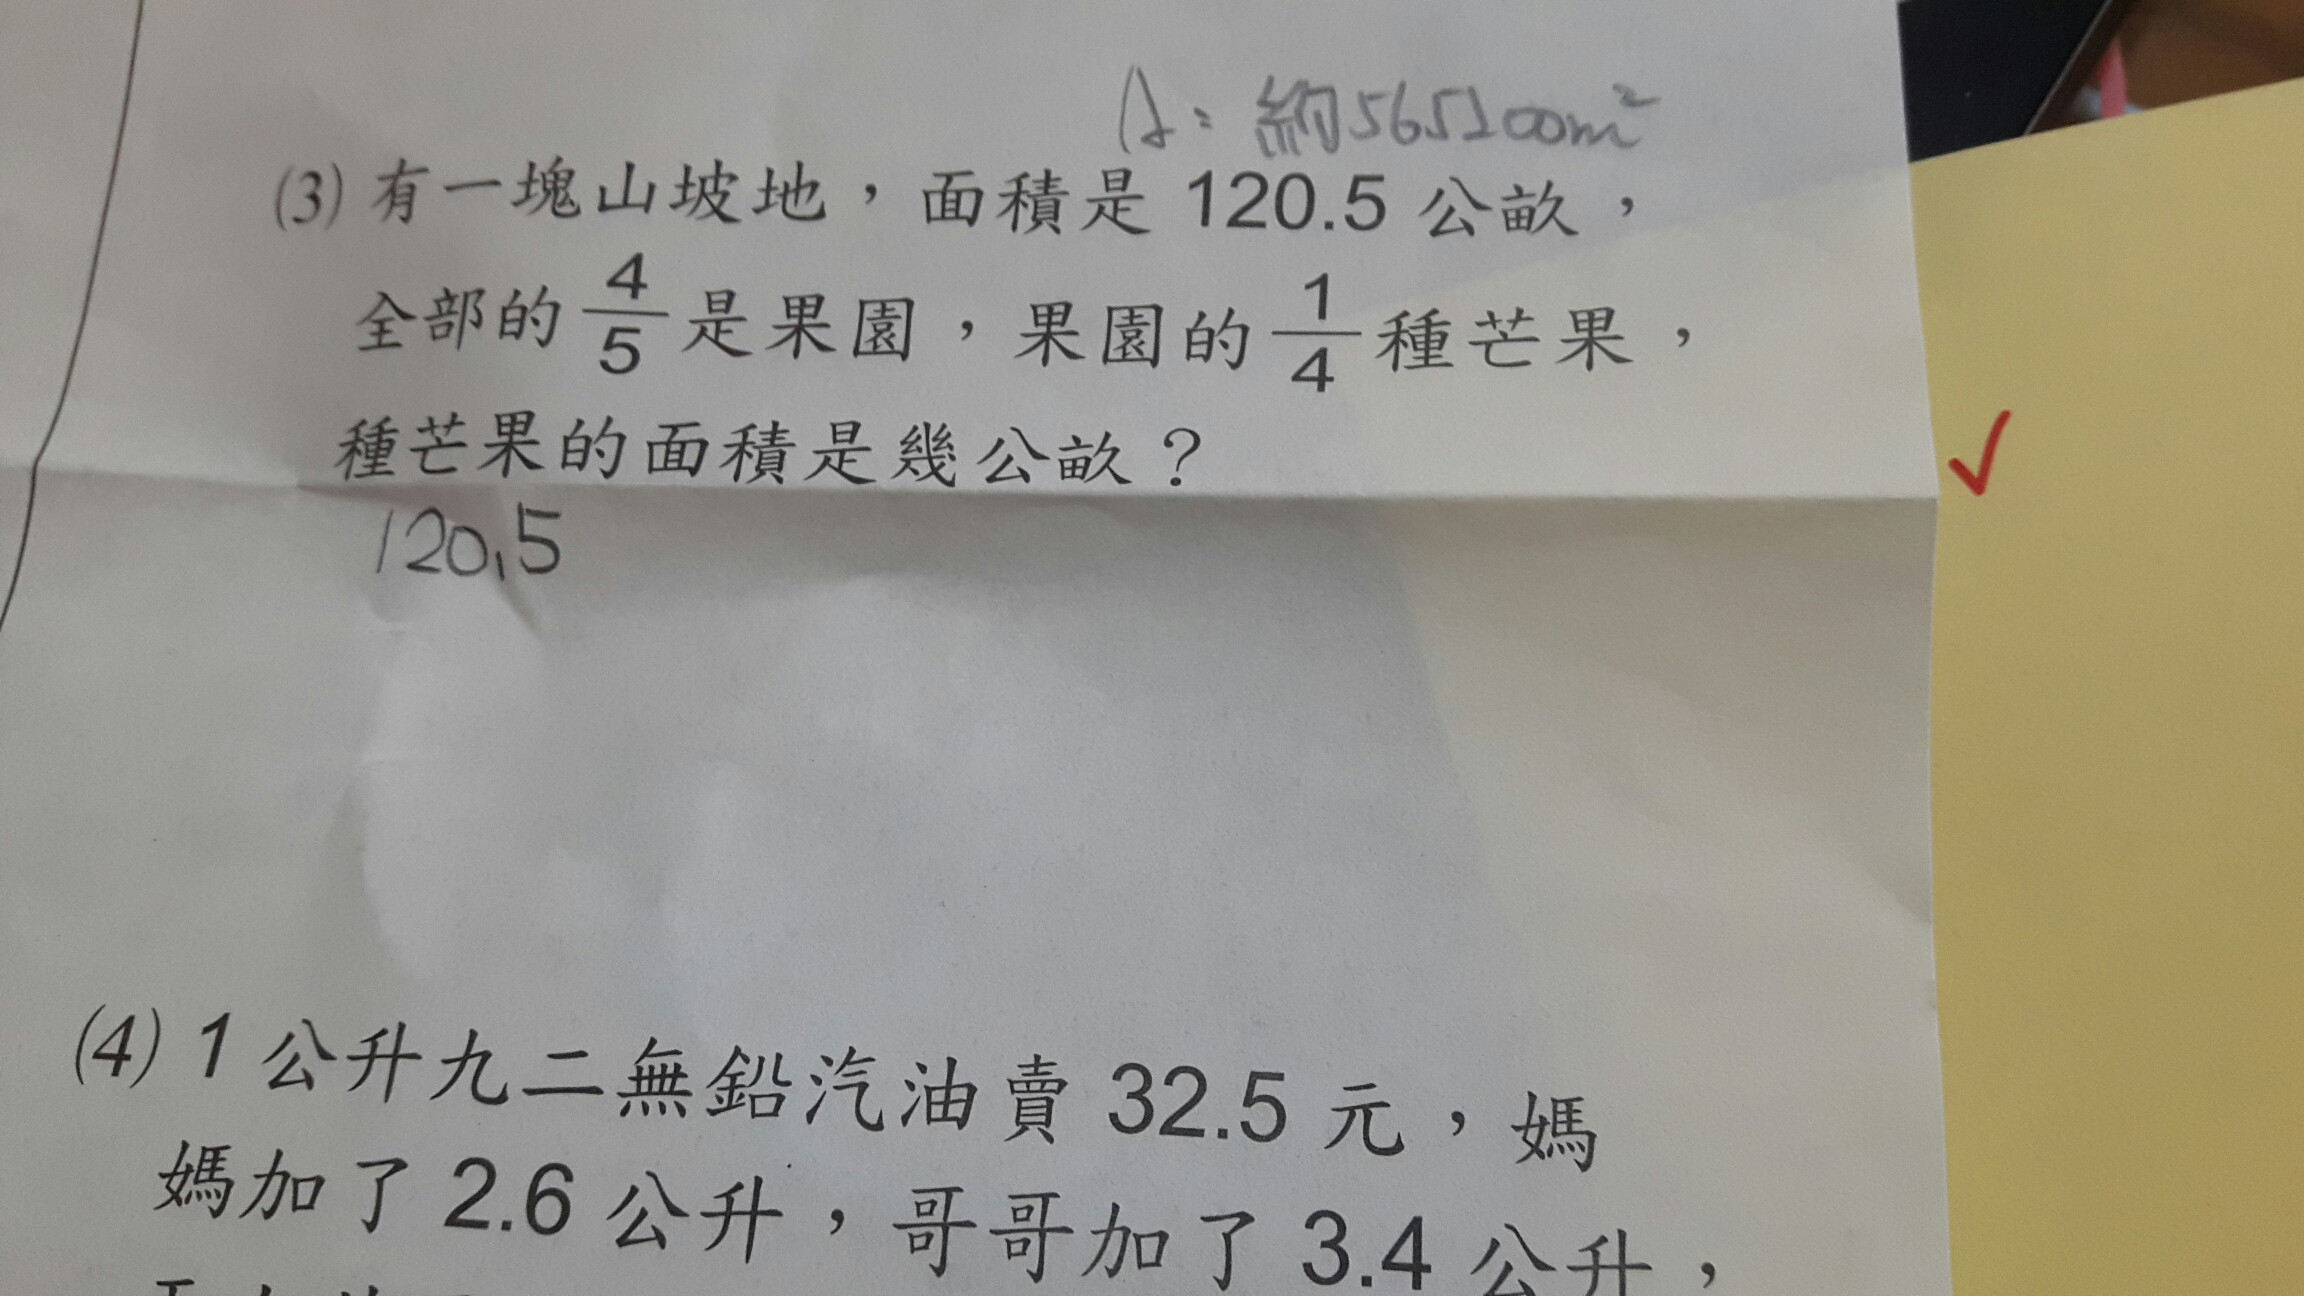 A：約565200m²
(3) 有一塊山坡地，面積是 120.5 公畝，
全部的 4/5 是果園，果園的 1/4 種芒果，
種芒果的面積是幾公畝？
120.5
(4) 1 公升九二無鉛汽油賣 32.5 元，媽
媽加了 2.6 公升，哥哥加了 3.4 公升，